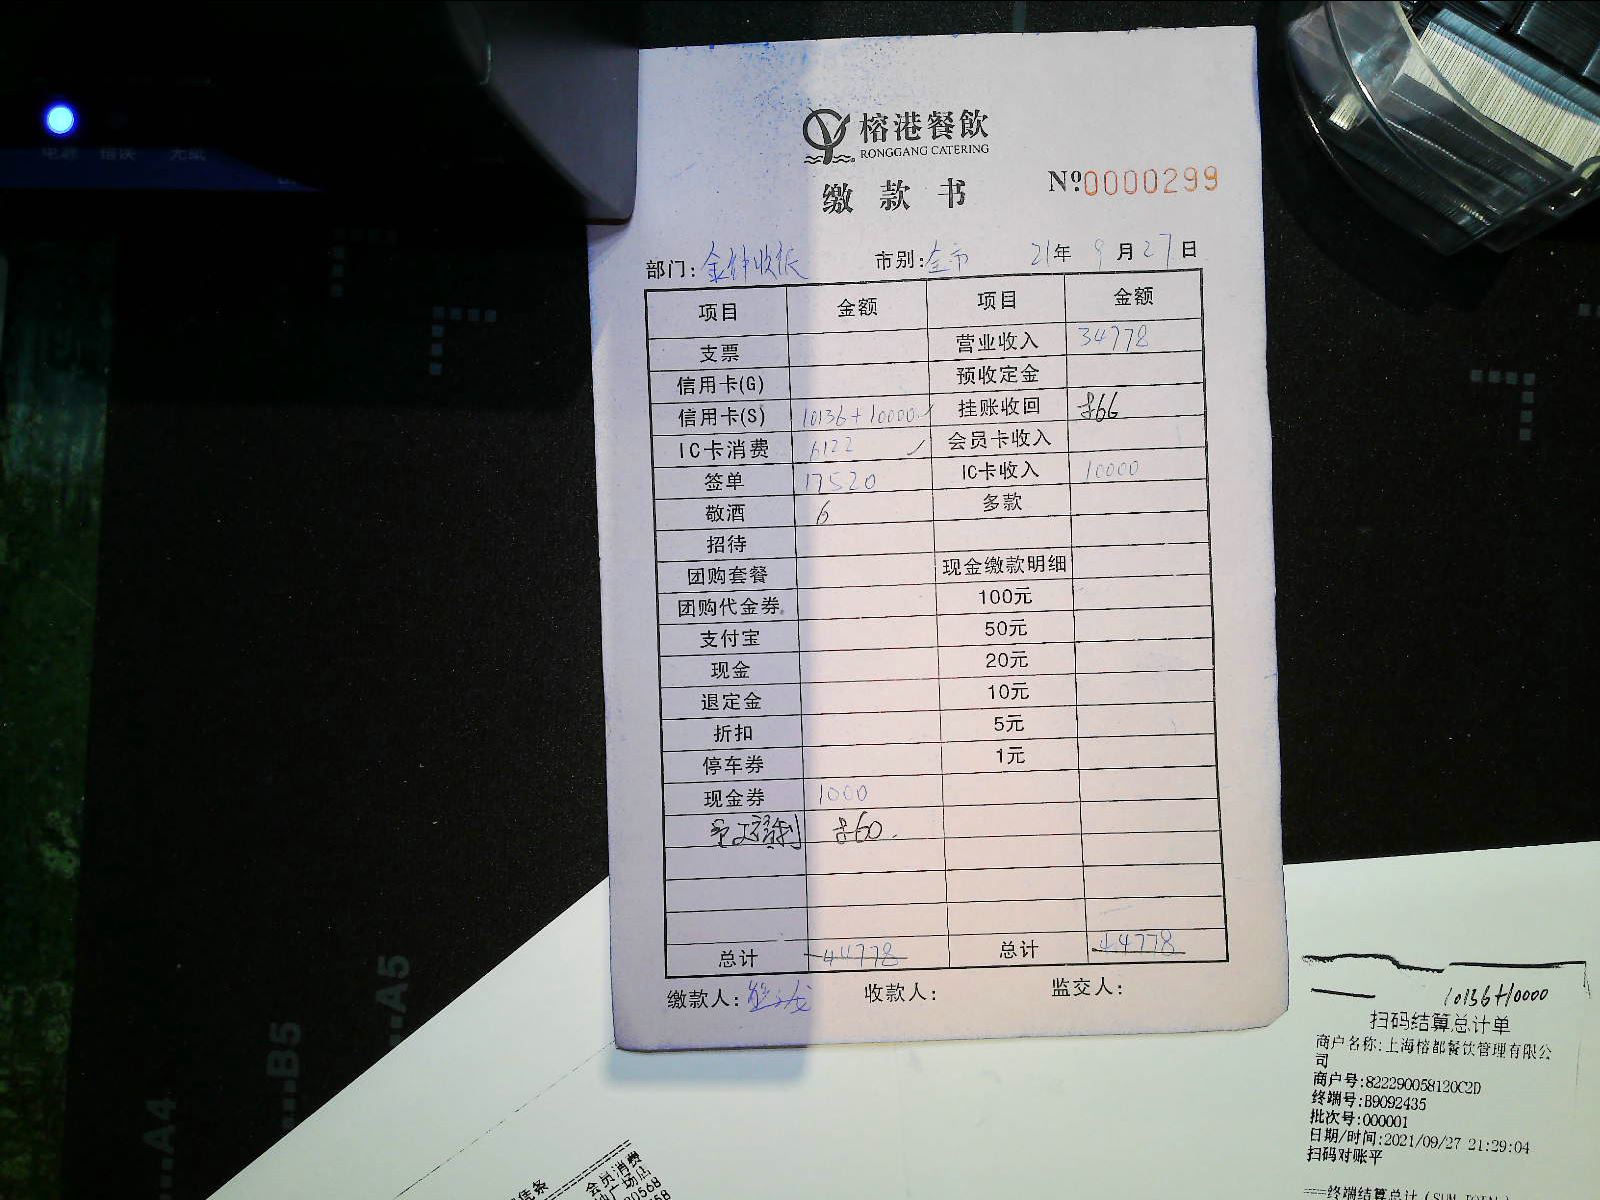 电源 错误 无纸
榕港餐飲
RONGGANG CATERING
缴款书 Nº0000299
部门: 市别:全市 21年 9月27日
项目 金额 项目 金额
支票 营业收入 34778
信用卡(G) 预收定金
信用卡(S) 10136+10000 挂账收回 66
IC卡消费 6122 会员卡收入
签单 17520 IC卡收入 10000
敬酒 6 多款
招待
团购套餐 现金缴款明细
团购代金券 100元
支付宝 50元
现金 20元
退定金 10元
折扣 5元
停车券 1元
现金券 1000
60.
总计 44778 总计 44778
缴款人: 收款人: 监交人:
A5
B5
A4
10136+10000
扫码结算总计单
商户名称:上海榕都餐饮管理有限公
司
商户号:822290058120C2D
终端号:B9092435
批次号:000001
日期/时间:2021/09/27 21:29:04
扫码对账平
===终端结算总计(SUM TOTAL)
凭条
会员消费
广场店
00568
58